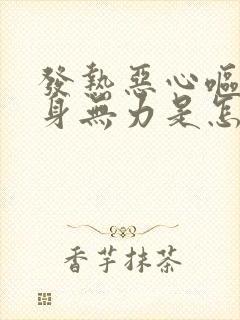 發熱惡心嘔
身無力是怎
香芋抹茶